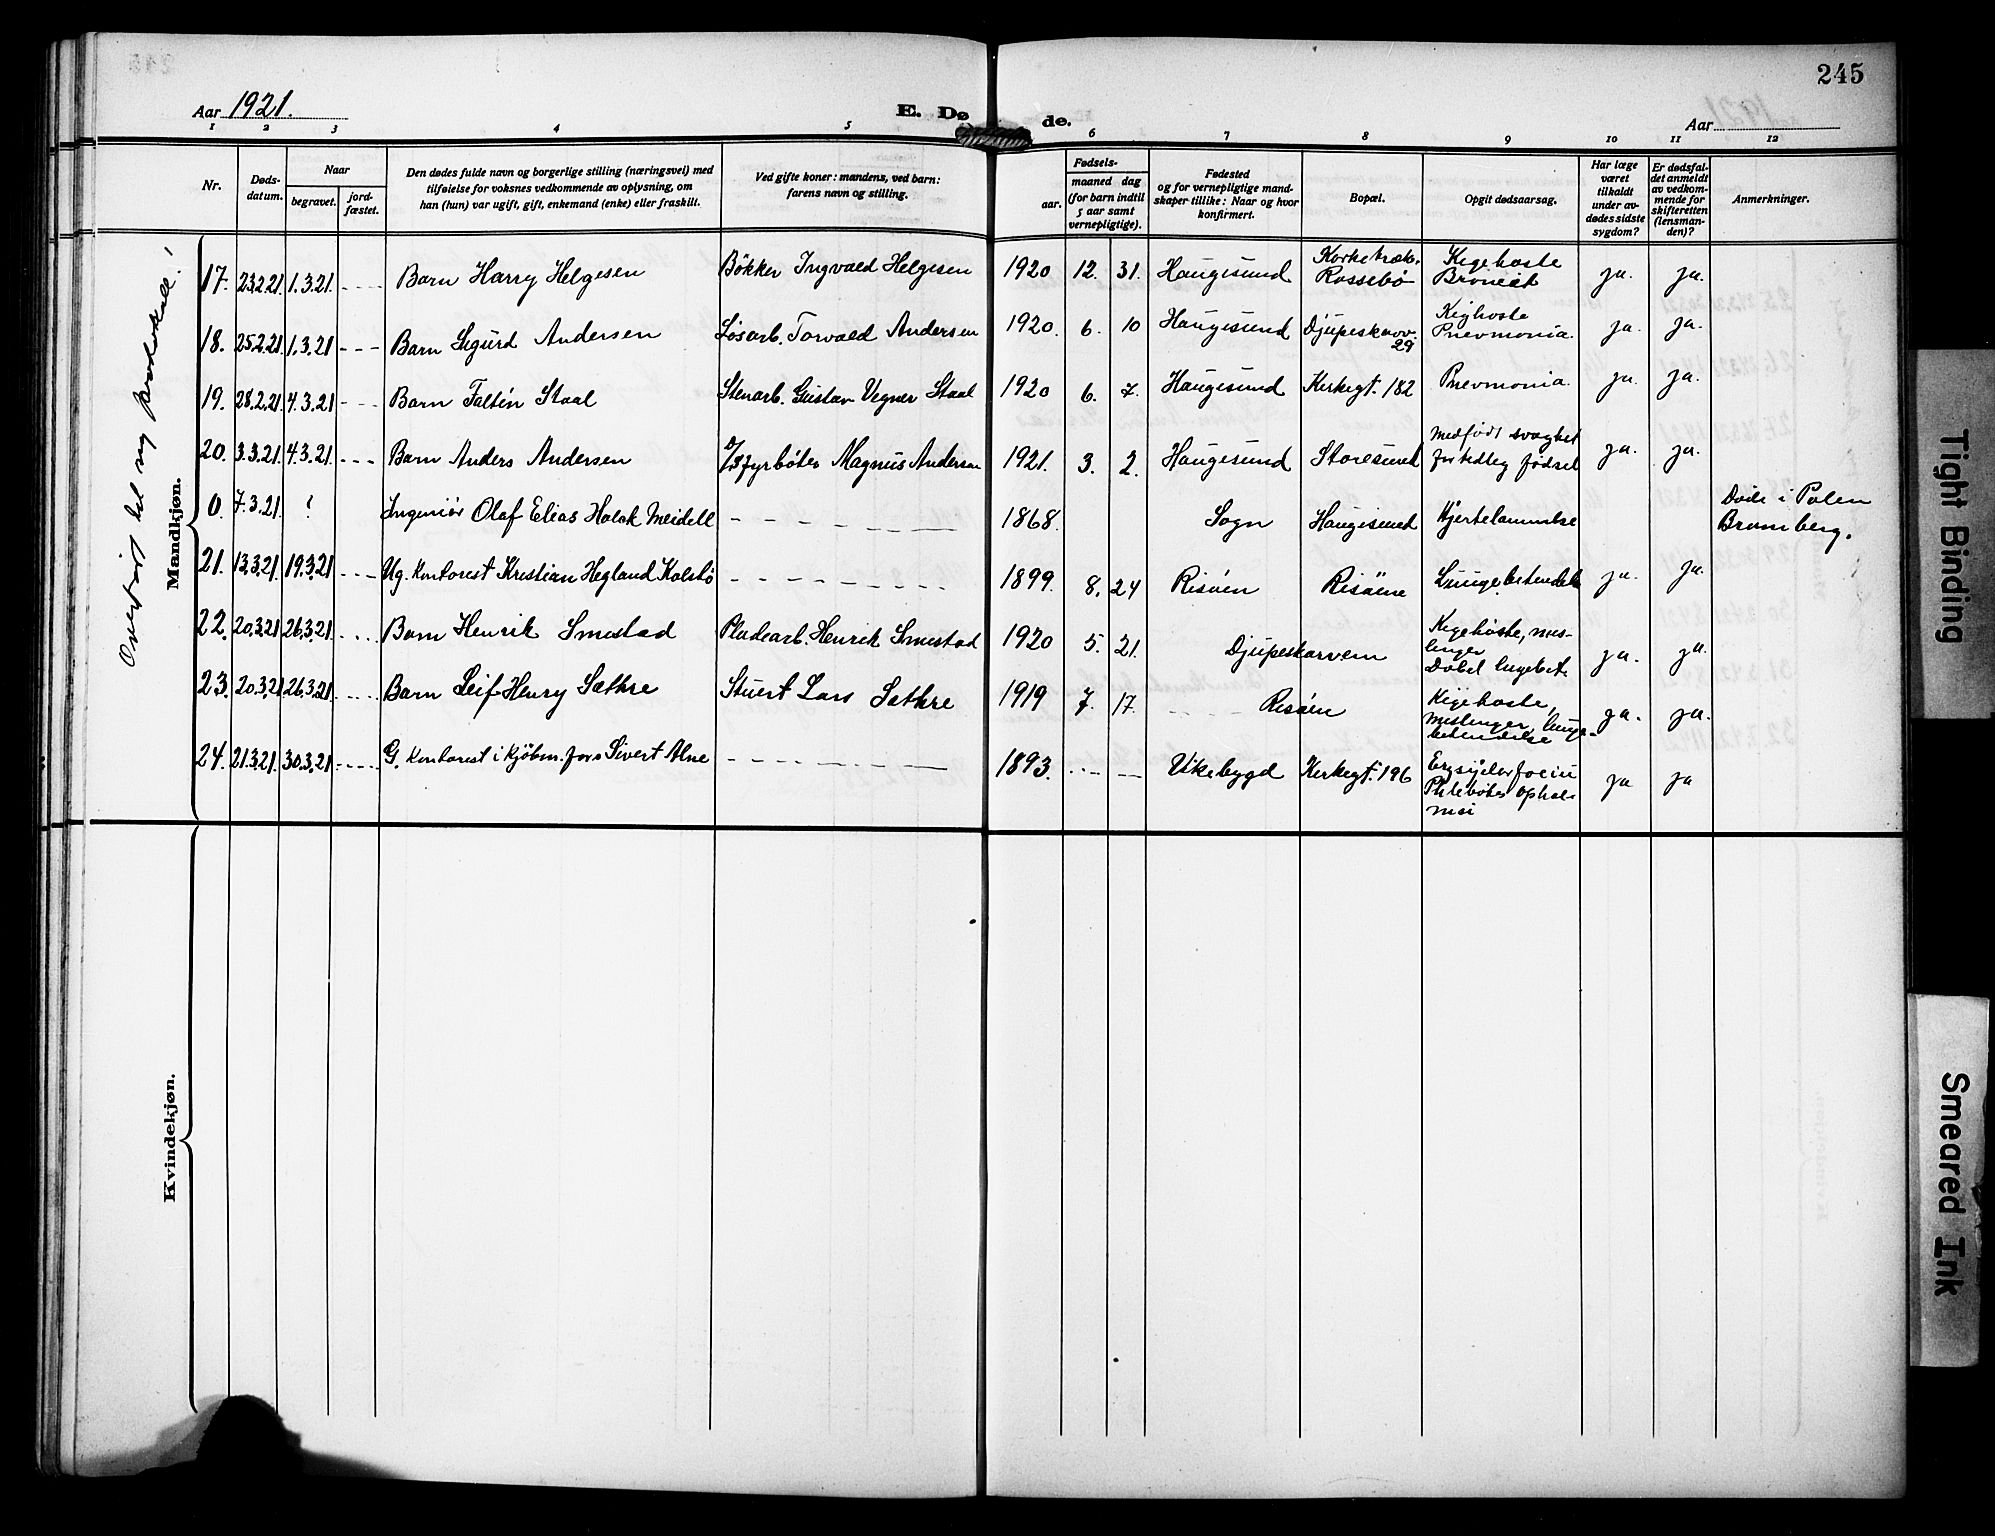 245
Aar 1921.
E. Dø de.
Aar
1 2 3 4 5 6 7 8 9 10 11 12
Nr.
Døds-
datum.
Naar
begravet.
jord-
fæstet.
Den dødes fulde navn og borgerlige stilling (næringsvei) med
tilføielse for voksnes vedkommende av oplysning, om
han (hun) var ugift, gift, enkemand (enke) eller fraskilt.
Ved gifte koner: mandens, ved barn:
farens navn og stilling.
Fødsels-
aar.
maaned dag
(for barn indtil
5 aar samt
vernepligtige).
Fødested
og for vernepligtige mand-
skaper tillike: Naar og hvor
konfirmert.
Bopæl.
Opgit dødsaarsag.
Har læge
været
tilkaldt
under av-
dødes sidste
sygdom?
Er dødsfal-
det anmeldt
av vedkom-
mende for
skifteretten
(lensman-
den)?
Anmerkninger.
Overført til ny protokoll!
Mandkjøn.
17. 23.2.21. 1.3.21. Barn Harry Helgesen Bøkker Ingvald Helgesen 1920 12. 31. Haugesund Rossebø Kigehoste ja. ja.
18. 25.2.21. 1.3.21 Barn Sigurd Andersen Løsarb. Torvald Andersen 1920. 6. 10 Haugesund Djupeskarv. 29 Kighoste Pnevmonia. ja. ja.
19. 28.2.21. 4.3.21 Barn Faltin Staal Stenarb. Gustav Vegner Staal 1920 6. 7. Haugesund Kirkegt. 182 Pnevmonia. ja. ja.
20. 3.3.21. 4.3.21. Barn Anders Andersen Fyrbøter Magnus Andersen 1921. 3. 2. Haugesund Storesund Medfødt svaghet for tidlig fødsel ja. ja.
0. 7.3.21. ! Ingeniør Olaf Elias Holck Meidell 1868. Sogn Haugesund Hjertelammelse Døde i Polen
Bromberg.
21. 13.3.21. 19.3.21 Ug. kontorist Kristian Hegland Kolstø 1899. 8. 24 Risøen Risøene Lungebetendelse ja. ja.
22. 20.3.21 26.3.21. Barn Henrik Smestad Pladearb. Henrik Smestad 1920 5. 21. Djupeskarven Kigehoste, mes-
linger
Dobel lugebet. ja. ja.
23. 20.3.21 26.3.21 Barn Leif Henry Sæthre Stuert Lars Sæthre 1919 7. 17. Risøen Kigehoste,
Meslinger, lunge-
betendelse ja. ja.
24. 21.3.21. 30.3.21 G. kontorist i kjøbm. forr. Sivert Alne 1893. Vikebygd Kirkegt. 196 ja ja
Kvindekjøn.
Tight Binding
Smeared Ink